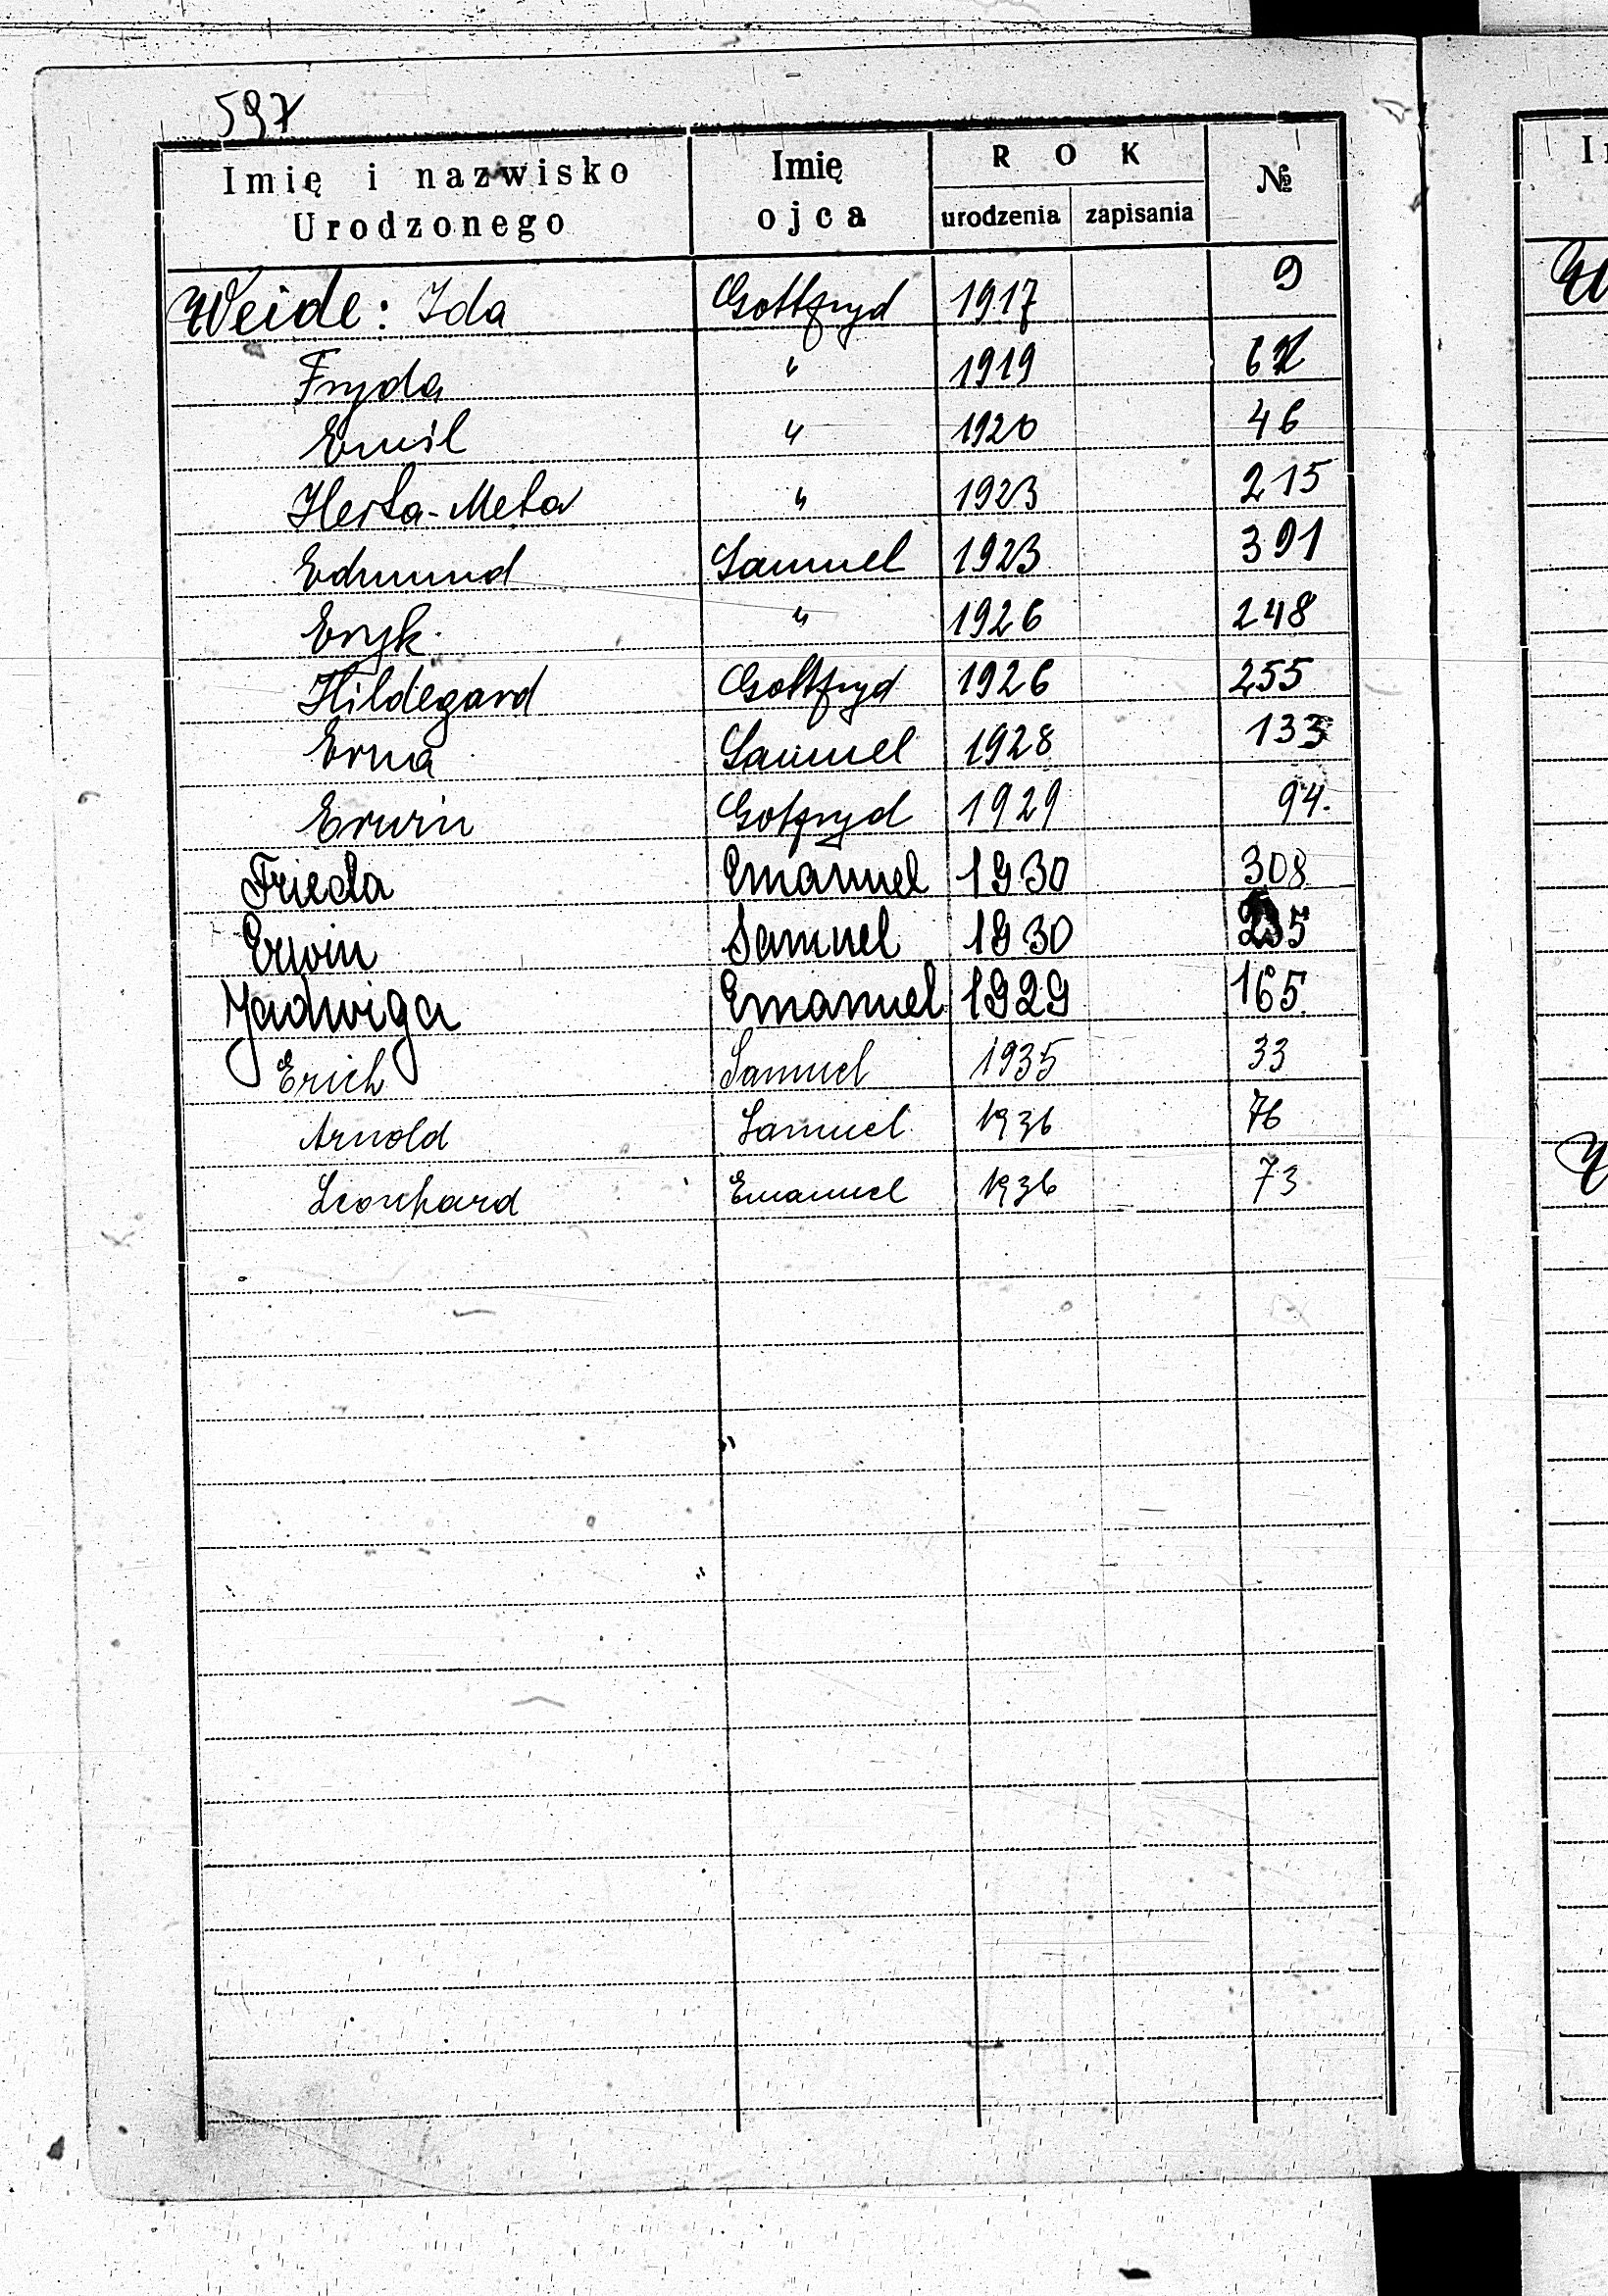 597
Imię i nazwisko Urodzonego Imię ojca ROK urodzenia zapisania №
Weide: Ida Gottfryd 1917 9
Fryda " 1919
Emil " 1920 46
Herta-Meta " 1923 215
Edmund Samuel 1923 391
Eryk " 1926 248
Hildegard Gottfryd 1926 255
Erna Samuel 1928 133
Erwin Gotfryd 1929 94.
Frieda Emanuel 1930 308
Erwin Samuel 1930
Jadwiga Emanuel 1929 165
Erich Samuel 1935 33
Arnold Samuel 1936 76
Leonhard Emanuel 1936 73